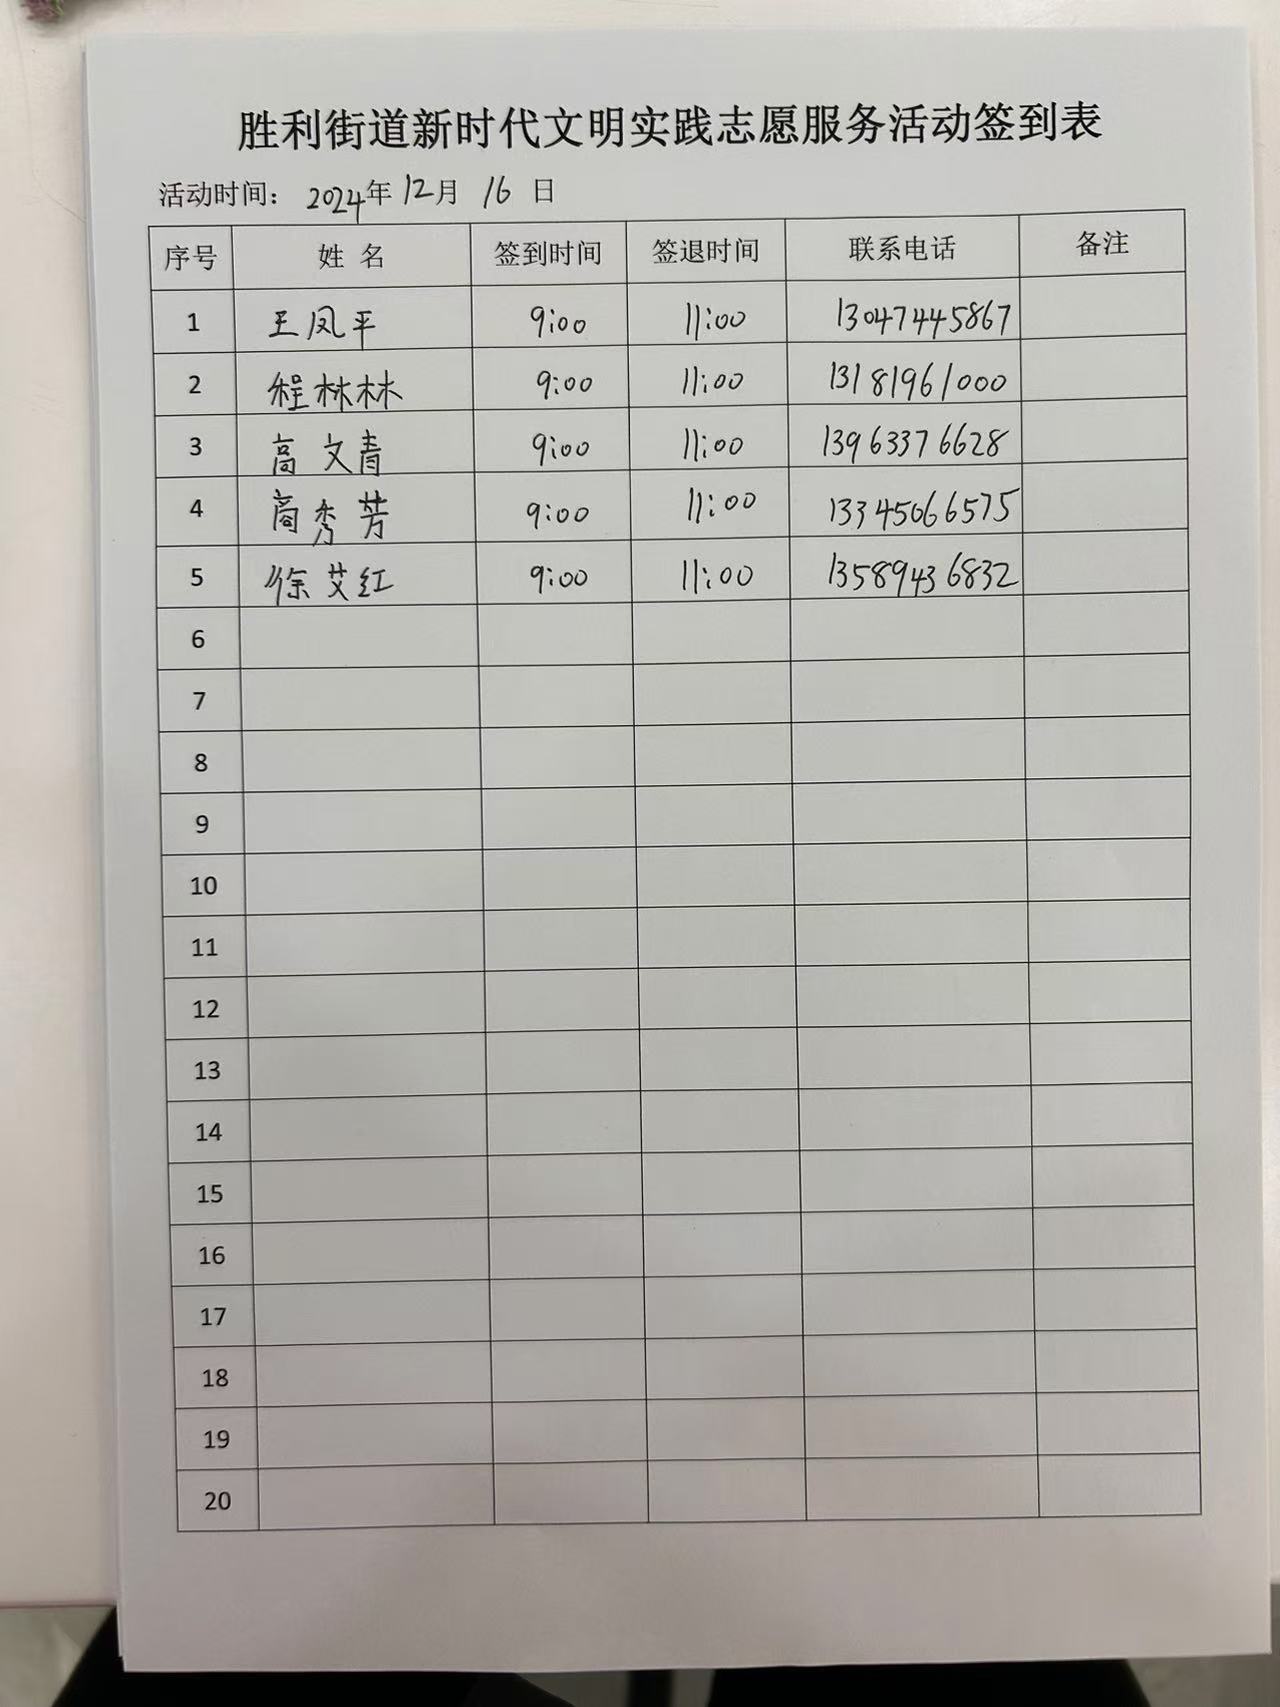 胜利街道新时代文明实践志愿服务活动签到表
活动时间： 2024年 12月 16 日
序号 姓 名 签到时间 签退时间 联系电话 备注
1 王凤平 9:00 11:00 13047445867
2 程林林 9:00 11:00 13181961000
3 高文青 9:00 11:00 13963376628
4 商秀芳 9:00 11:00 13345066575
5 徐艾红 9:00 11:00 13589436832
6
7
8
9
10
11
12
13
14
15
16
17
18
19
20